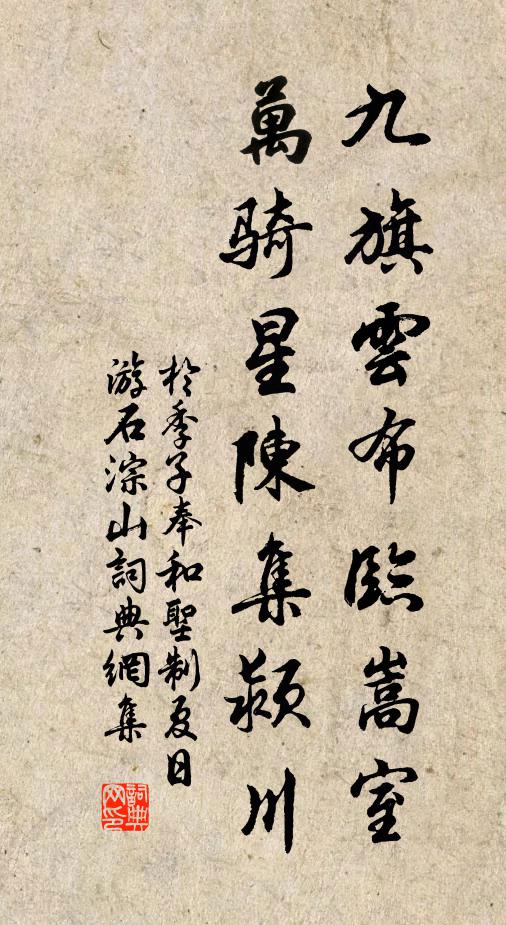 九旗雲布臨嵩室
萬騎星陳集潁川
於季子奉和聖制夏日
游石淙山詞典網集
詞典網印